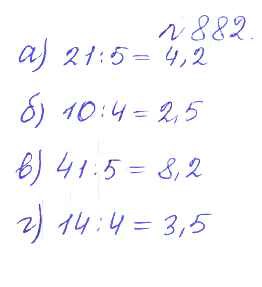 № 882.
а) 21:5 = 4,2
б) 10:4 = 2,5
в) 41:5 = 8,2
г) 14:4 = 3,5